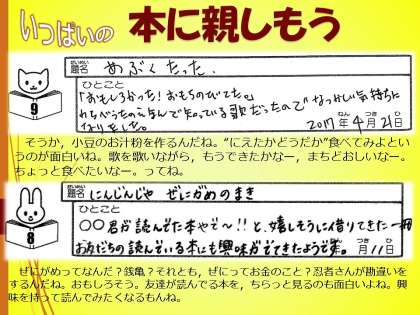 いっぱいの 本に親しもう
9
だいめい
題名 あぶくたった
ひとこと
「おもしろかった!おもちのびてた。」
わらべうたの えほんで知っている歌だったので なつかしい気持ちに
なりました。
2017年4月21日
そうか，小豆のお汁粉を作るんだね。“にえたかどうだか”食べてみよとい
うのが面白いね。歌を歌いながら，もうできたかなー，まちどおしいなー。
ちょっと食べたいなー。ってね。
8
だいめい
題名 にんじんじゃ ぜにがめのまき
ひとこと
〇〇君が読んでた本やで～!!と、嬉しそうに借りてきた一冊
お友だちの読んでいる本にも興味がでてきたようです。
月11日
ぜにがめってなんだ？銭亀？それとも，ぜにってお金のこと？忍者さんが勘違いを
するんだね。おもしろそう。友達が読んでる本を，ちらっと見るのも面白いよね。興
味を持って読んでみたくなるもんね。